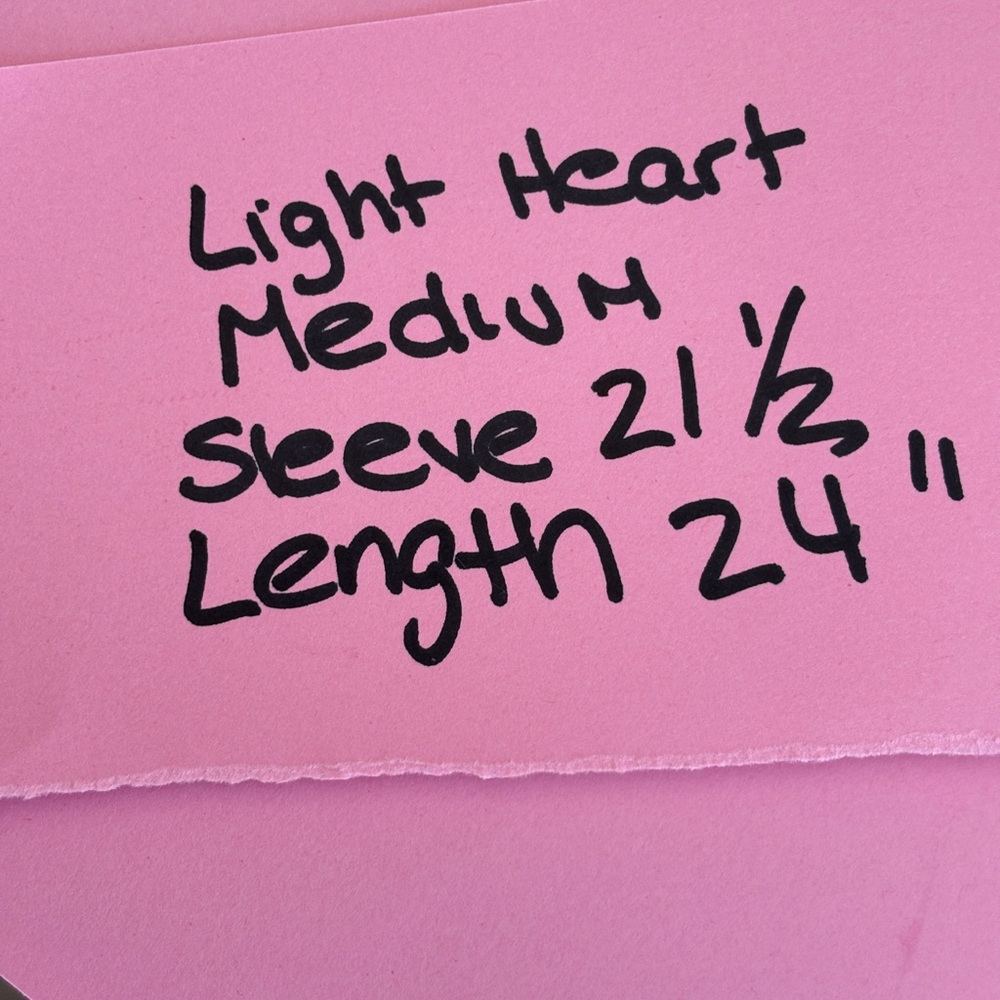 Light Heart
Medium
Sleeve 21 1/2
Length 24"